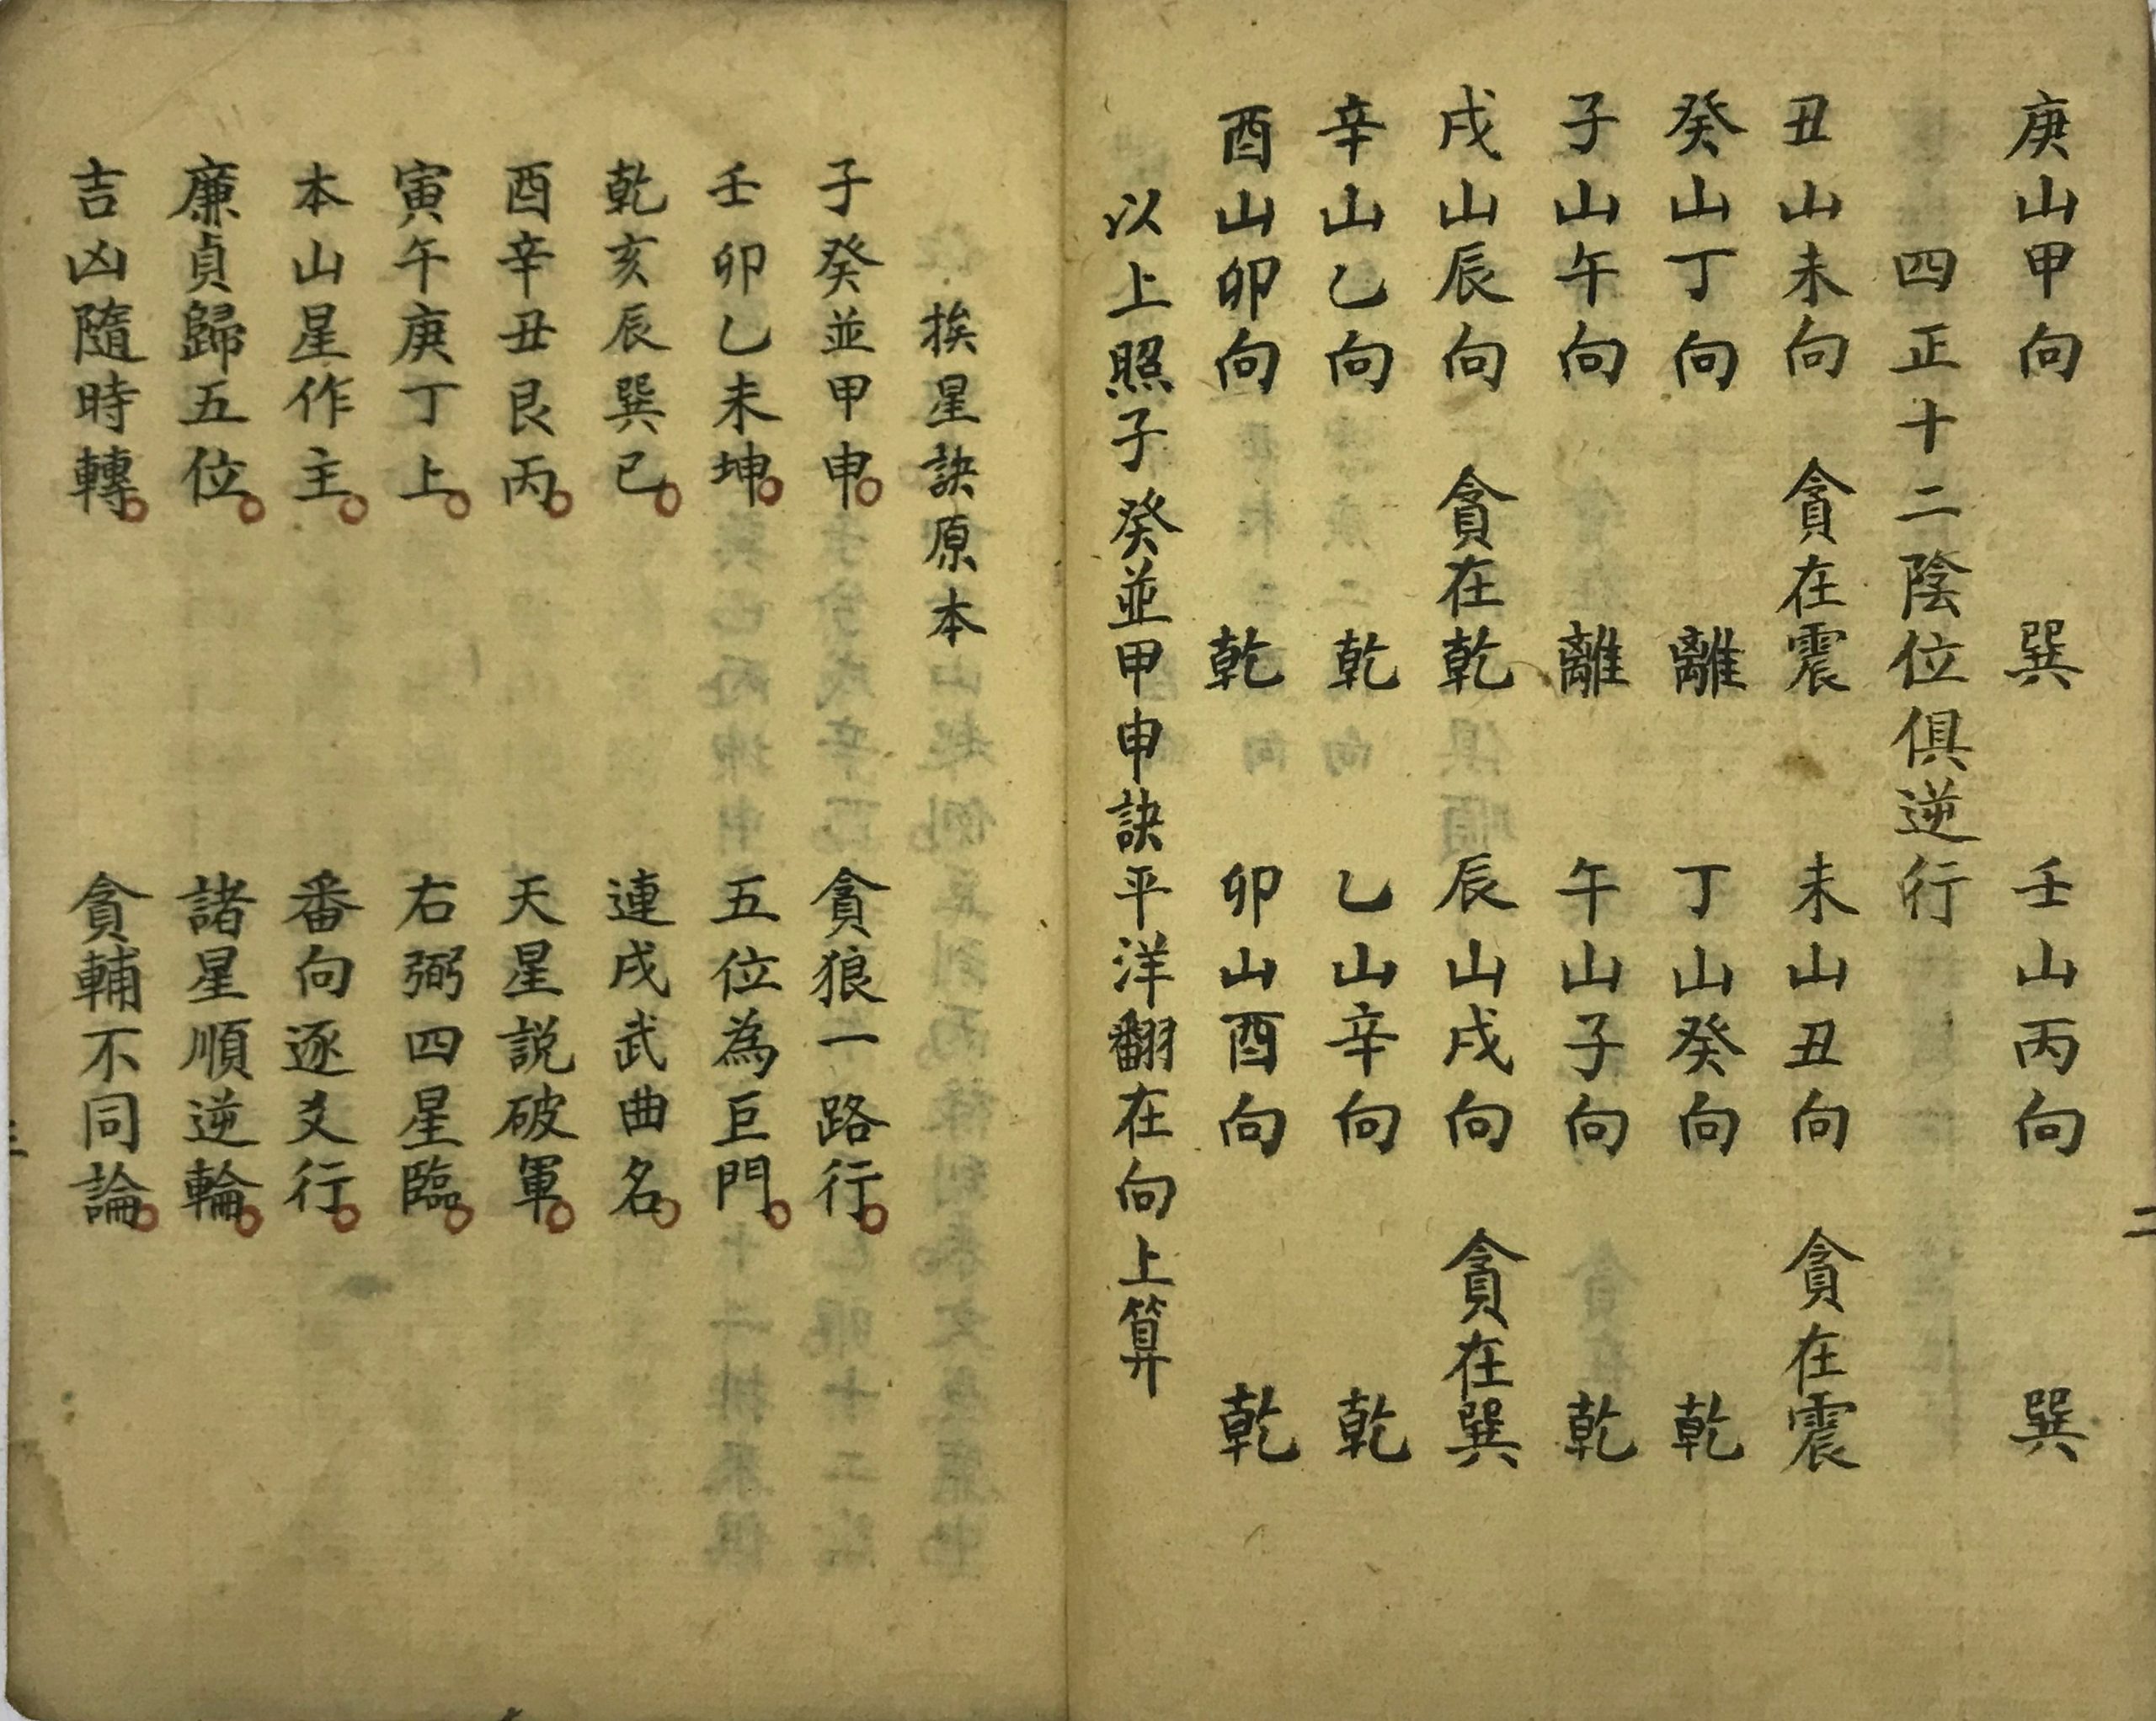 庚山甲向 巽 壬山丙向 巽
四正十二陰位俱逆行
丑山未向 貪在震 未山丑向 貪在震
癸山丁向 離 丁山癸向 乾
子山午向 離 午山子向 乾
戌山辰向 貪在乾 辰山戌向 貪在巽
辛山乙向 乾 乙山辛向 乾
酉山卯向 乾 卯山酉向 乾
以上照子癸並甲申訣平洋翻在向上算
二
挨星訣原本
子癸並甲申 貪狼一路行
壬卯乙未坤 五位為巨門
乾亥辰巽已 連戌武曲名
酉辛丑艮丙 天星説破軍
寅午庚丁上 右弼四星臨
本山星作主 番向逐爻行
廉貞歸五位 諸星順逆輪
吉凶隨時轉 貪輔不同論